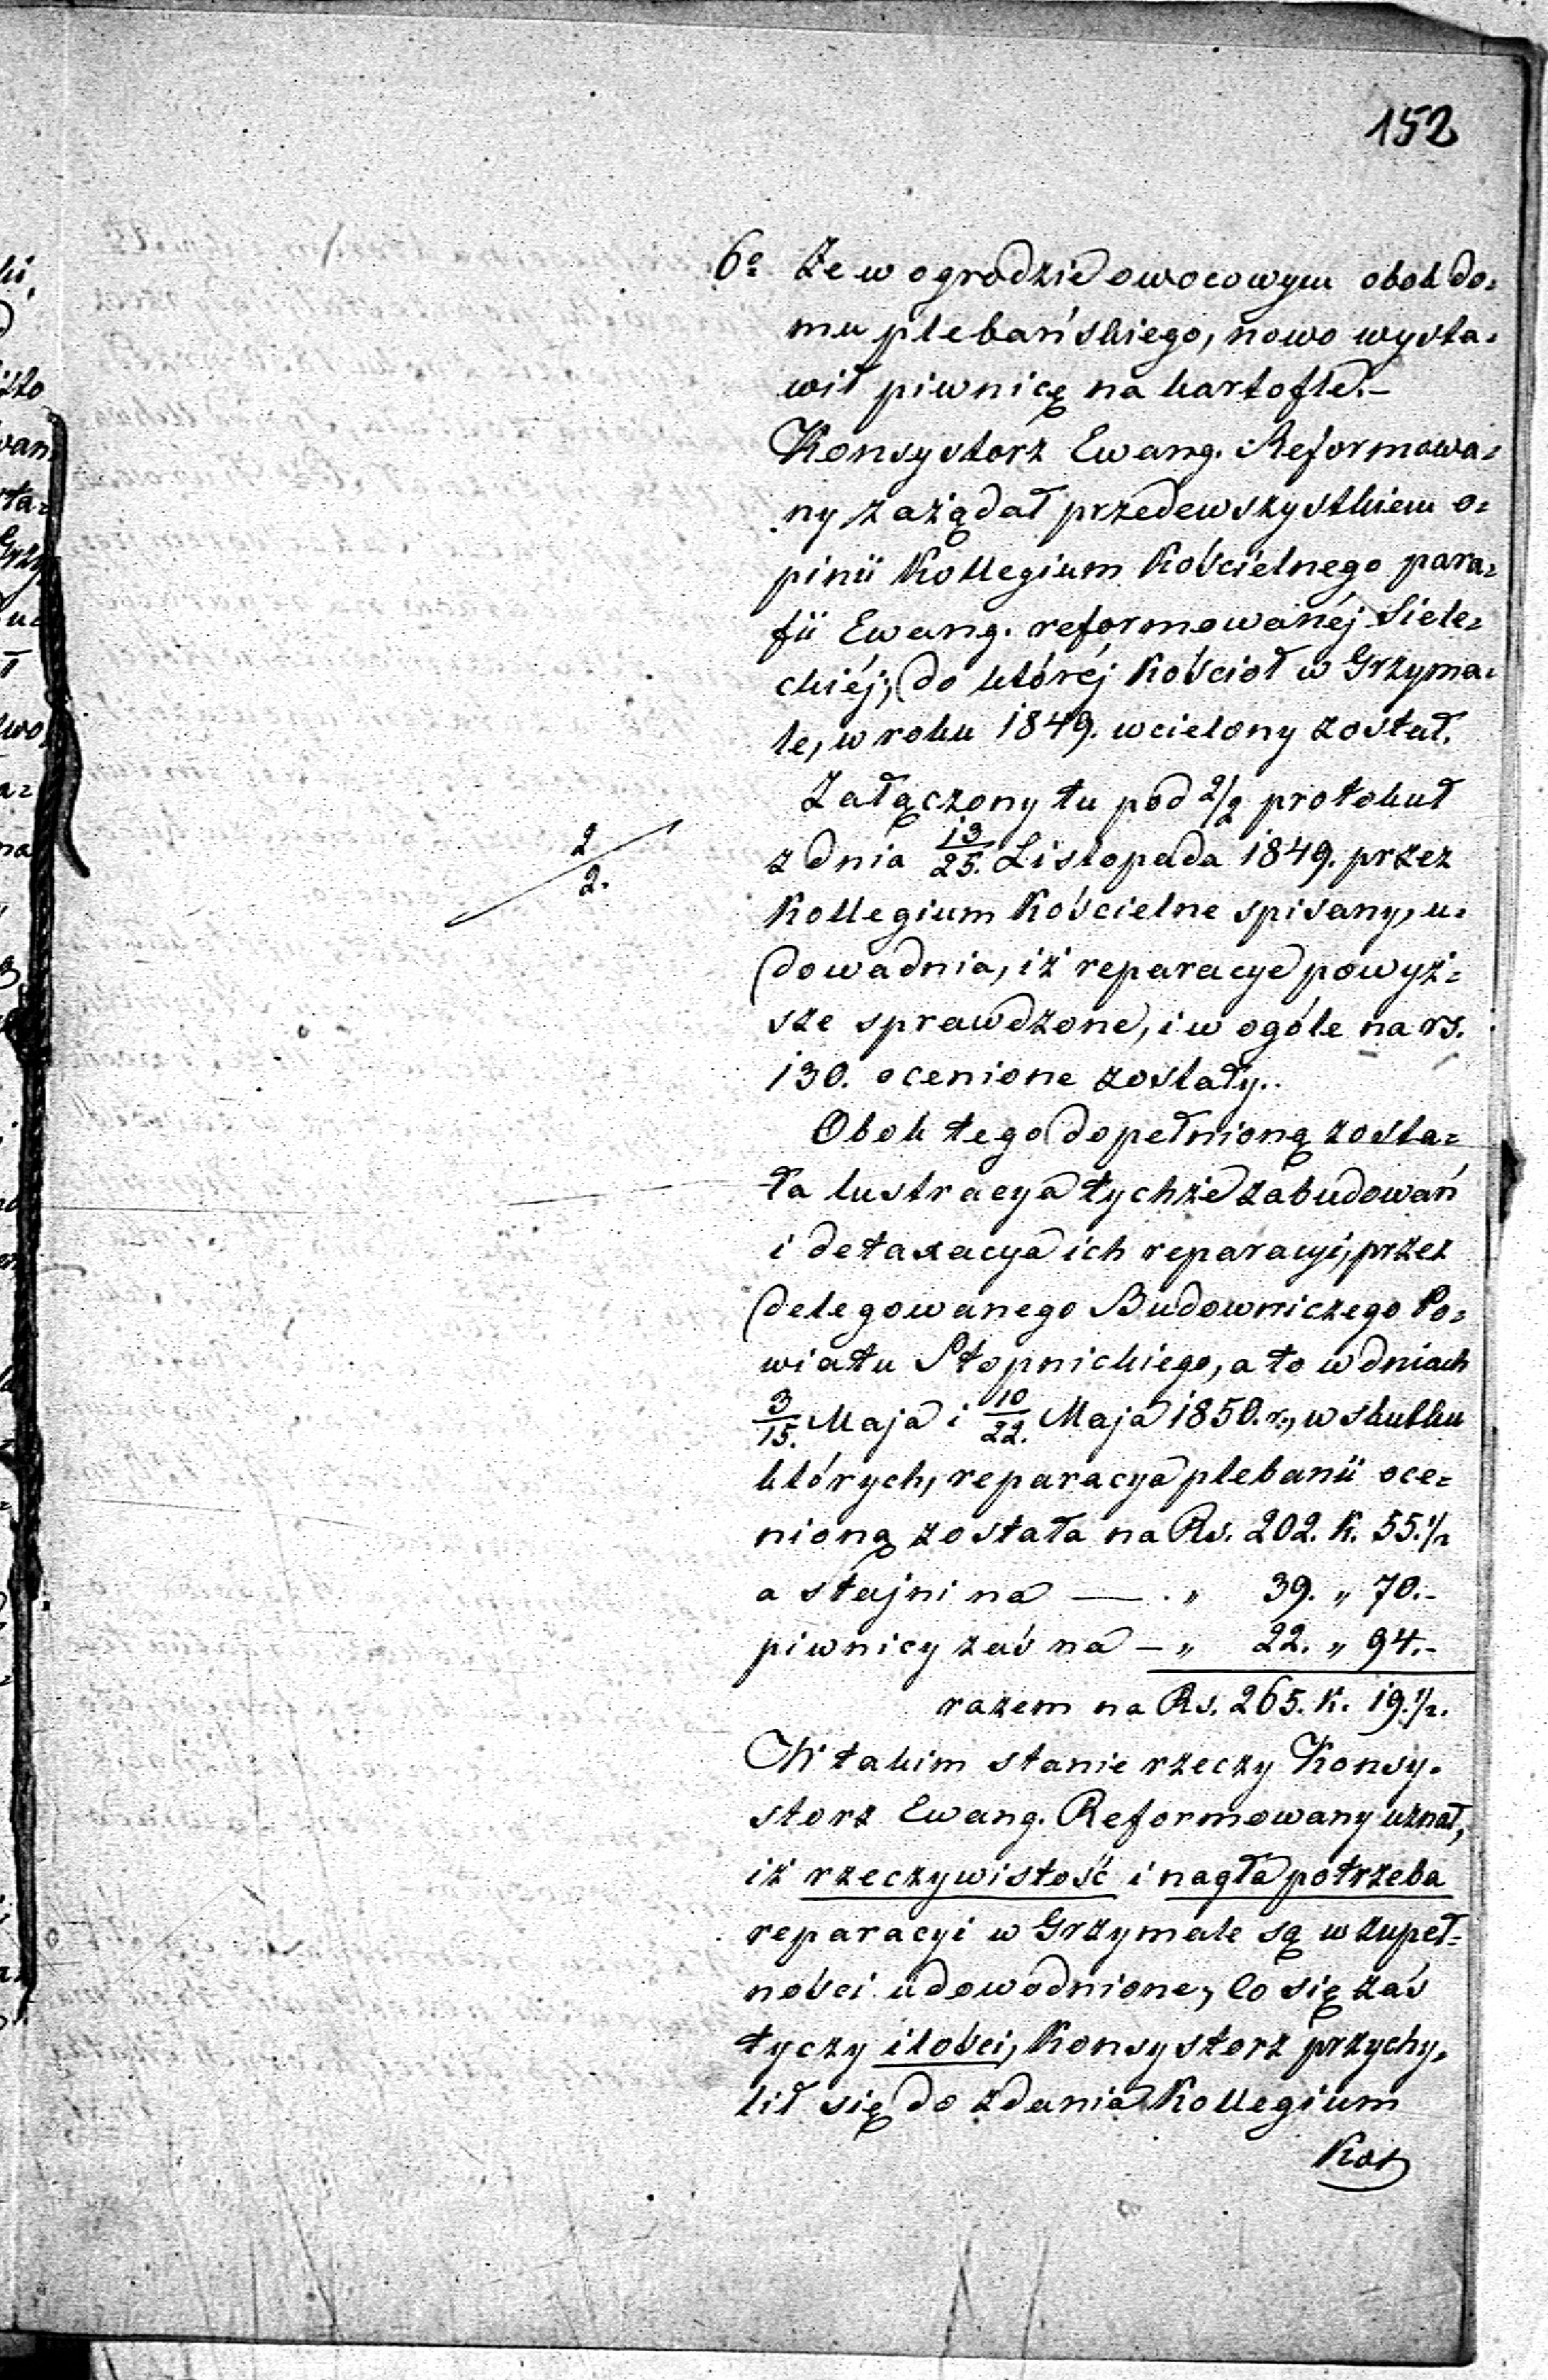 152
6o Że w ogrodzie owocowym obok do=
mu plebańskiego, nowo wysta=
wił piwnicę na kartofle.–
Konsystorz Ewang. Reformowa=
ny zażądał przedewszystkiem o=
pinii Kollegium Kościelnego para=
fii Ewang. reformowanéj Siele=
ckiéj, do któréj Kościoł w Grzyma=
le, w roku 1849. wcielony został.
Załączony tu pod 2/2 protokuł
2/2.
z dnia 13/25. Listopada 1849. przez
Kollegium Kościelne spisany, u=
dowadnia, iż reparacye powyż=
sze sprawdzone, i w ogóle na rs.
130. ocenione zostały..
Obok tego dopełnioną zosta=
ła lustracya tychże zabudowań
i detaxacya ich reparacyi, przez
delegowanego Budowniczego Po=
wiatu Stopnickiego, a to w dniach
3/15. Maja i 10/22. Maja 1850. r., w skutku
których, reparacya plebanii oce=
nioną została na Rs. 202. K. 55.1/2
a stajni na — . „ 39. „ 70.–
piwnicy zaś na – „ 22. „ 94.–
razem na Rs. 265. K. 19.1/2.
W takim stanie rzeczy Konsy=
storz Ewang. Reformowany uznał,
iż rzeczywistość i nagła potrzeba
reparacyi w Grzymale są w zupeł=
ności udowodnione, co się zaś
tyczy ilości, Konsystorz przychy=
lił się do zdania Kollegium
Koś